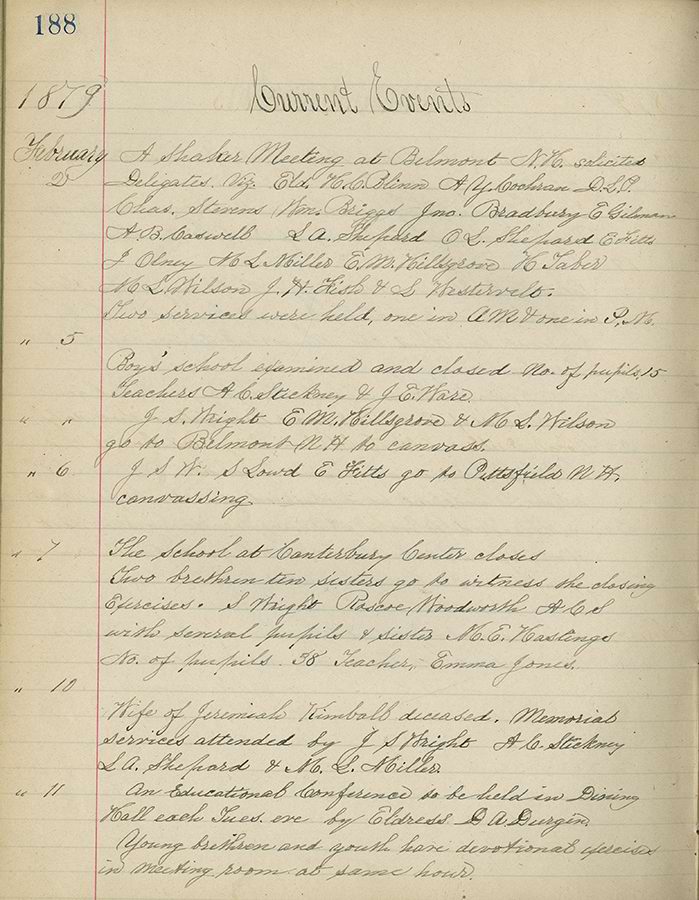 188
1879 Current Events
February A Shaker Meeting at Belmont N.H. solicites
2 Deligates. Viz. Eld. H.C. Blinn A Y. Cochran D.S.P.
Chas. Stevens Wm. Briggs Jno. Bradbury E Gilman
A.B. Caswell L A. Shepard O L. Shepard E Fitts
J Olney M L Miller E.M. Hillsgrove H Taber
M L Wilson J. H. Fish & L Westervelt.
Two services were held, one in A M & one in P.M.
" 5
Boy's school examined and closed No. of pupils, 15
Teachers A C. Stickney & J. E. Ware
" " J S. Wright E M. Hillsgrove & M L. Wilson
go to Belmont N H to canvass.
" 6 J S W. S Lowd E Fitts go to Pittsfield N H.
canvassing.
" 7 The School at Canterbury Center closes
Two brethren ten sisters go to witness the closing
Exercises. S Wright Roscoe Woodworth A C S
with several pupils & sister M. E. Hastings
No. of pupils 38 Teacher, Emma Jones.
" 10
Wife of Jeremiah Kimball diceased. Memorial
services attended by J S Wright A C. Stickney
L A. Shepard & M. L. Miller.
" 11 An Educational Conference to be held in Dining
Hall each Tues. eve by Eldress D A Durgin
Young brethren and youth have devotional exercises
in meeting room at same hour.